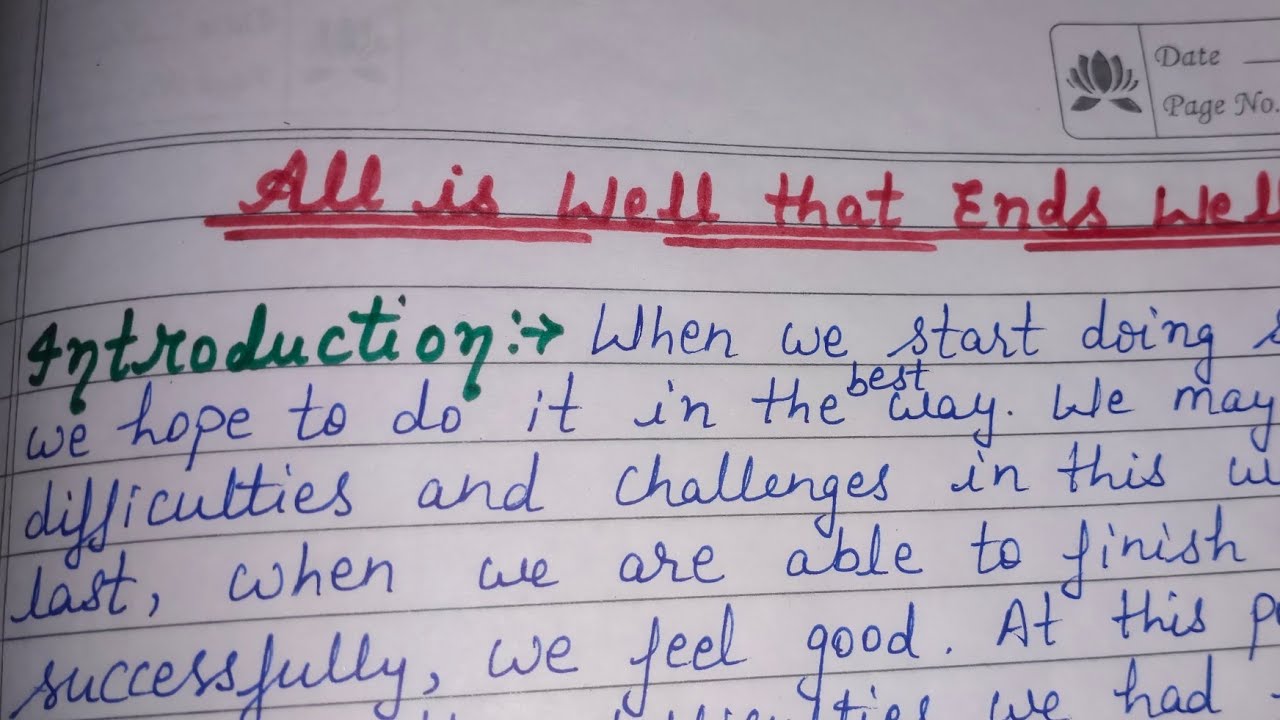 Date
Page No.
All is Well that Ends Well
Introduction:→ When we start doing
we hope to do it in the best way. We may
difficulties and challenges in this
last, when we are able to finish
successfully, we feel good. At this
we had